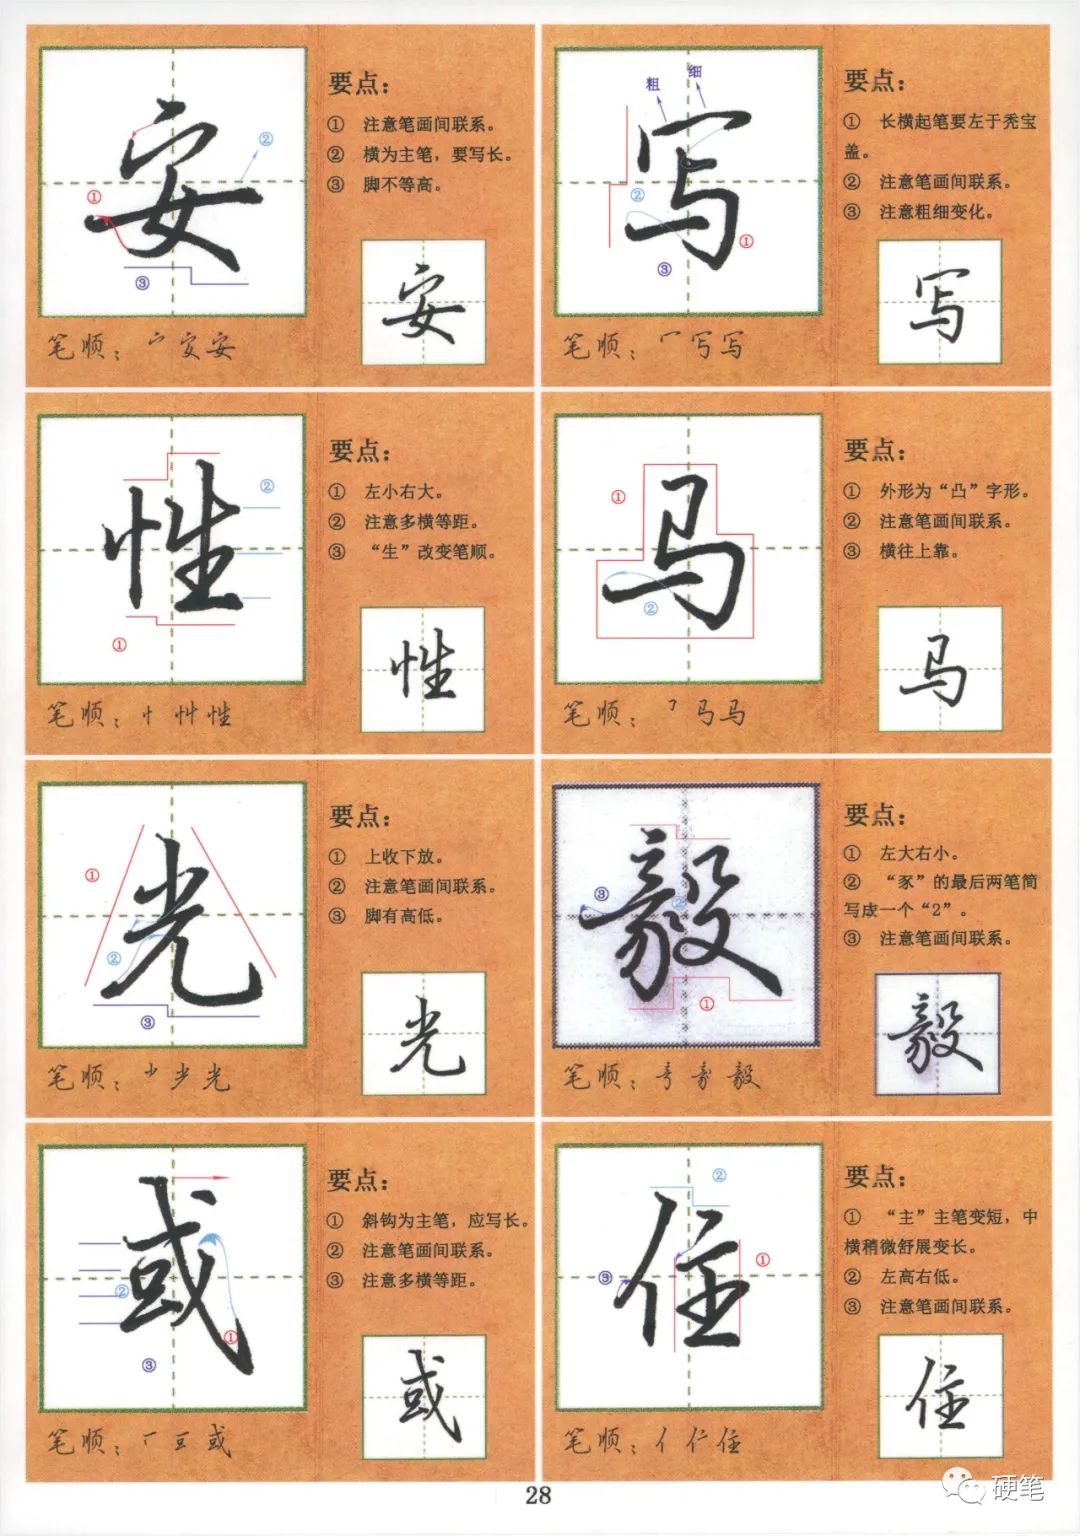 安
①
②
③
要点：
① 注意笔画间联系。
② 横为主笔，要写长。
③ 脚不等高。
安
笔顺：宀 安 安
粗 细
写
①
②
③
要点：
① 长横起笔要左于秃宝
盖。
② 注意笔画间联系。
③ 注意粗细变化。
写
笔顺：冖 写 写
性
①
②
要点：
① 左小右大。
② 注意多横等距。
③ “生”改变笔顺。
性
笔顺：性
马
①
②
要点：
① 外形为“凸”字形。
② 注意笔画间联系。
③ 横往上靠。
马
笔顺：马 马
光
①
②
③
要点：
① 上收下放。
② 注意笔画间联系。
③ 脚有高低。
光
笔顺：光
毅
①
②
③
要点：
① 左大右小。
② “豕”的最后两笔简
写成一个“2”。
③ 注意笔画间联系。
毅
笔顺：毅
或
①
②
③
要点：
① 斜钩为主笔，应写长。
② 注意笔画间联系。
③ 注意多横等距。
或
笔顺：或
住
①
②
③
要点：
① “主”主笔变短，中
横稍微舒展变长。
② 左高右低。
③ 注意笔画间联系。
住
笔顺：亻 仁 住
28
硬笔